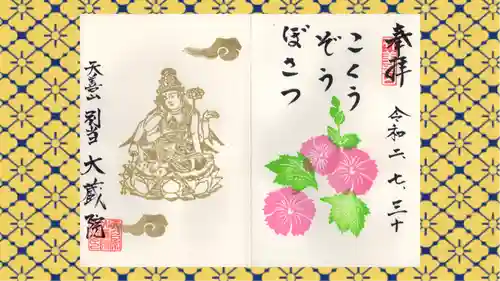 奉拝
令和二、七、三十
こくう
ぞう
ぼさつ
別当 大蔵院